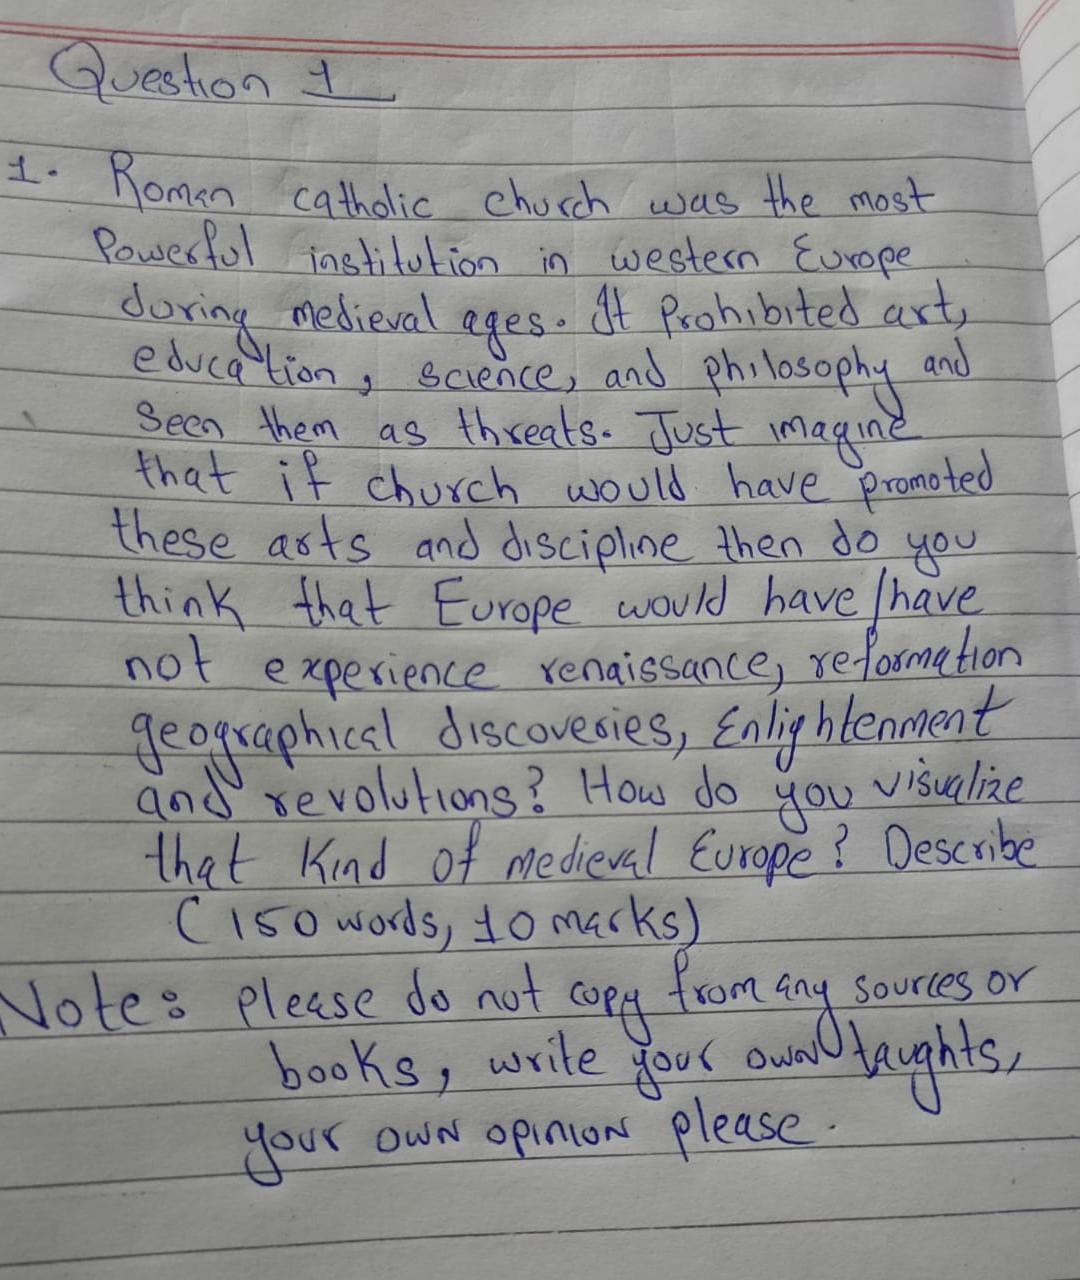 Question 1
1. Roman catholic church was the most
Powerful institution in western Europe
during medieval ages. It Prohibited art,
education, science, and philosophy and
Seen them as threats. Just imagine
that if church would have promoted
these arts and discipline then do you
think that Europe would have/have
not experience renaissance, reformation
geographical discoveries, Enlightenment
and revolutions? How do you visualize
that kind of medieval Europe? Describe
(150 words, 10 marks)
Note: please do not copy from any sources or
books, write your own taughts,
your own opinion please.